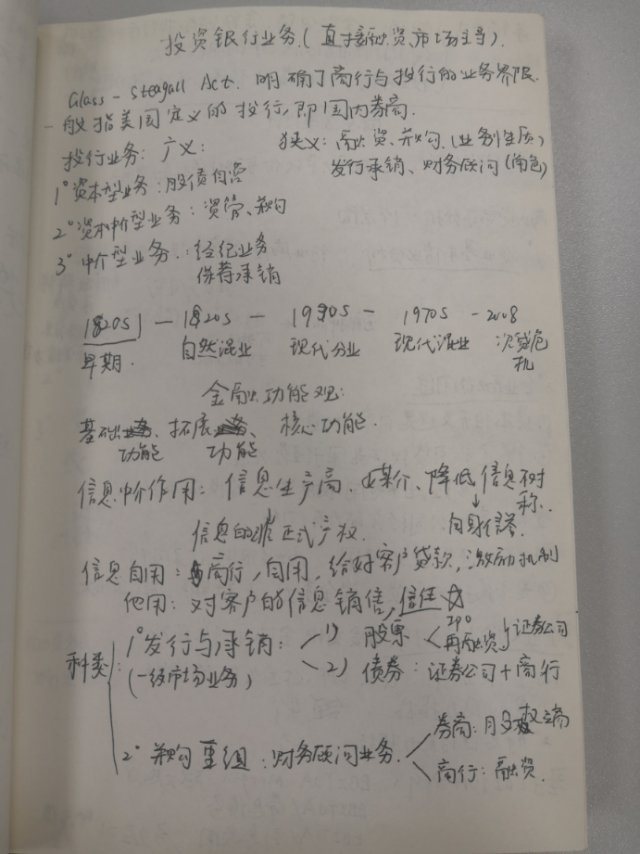 投资银行业务.(直接融资,市场主导).
Glass-Steagall Act. 明确了商行与投行的业务界限.
一般指美国定义的投行,即国内券商.
投行业务: 广义: 狭义: 融资、并购.(业务性质)
发行承销、财务顾问(角色)
1°资本型业务:股债自营
2°资本中介型业务:资管、并购
3°中介型业务:经纪业务
保荐承销
1820S — 1920S — 1930S — 1970S — 2008
早期. 自然混业 现代分业 现代混业 次贷危机
金融功能观:
基础、拓展、核心功能.
功能 功能
信息中介作用: 信息生产商、媒介、降低信息不对称.
信息的非正式产权. 自身信誉
信息自用: 商行,自用,给好客户贷款,激励机制
他用: 对客户的信息销售,信任
种类: 1°发行与承销: 1) 股票 IPO 再融资 证券公司
(一级市场业务) 2) 债券: 证券公司+商行
2°并购重组:财务顾问业务. 券商:股权端
商行:融资.